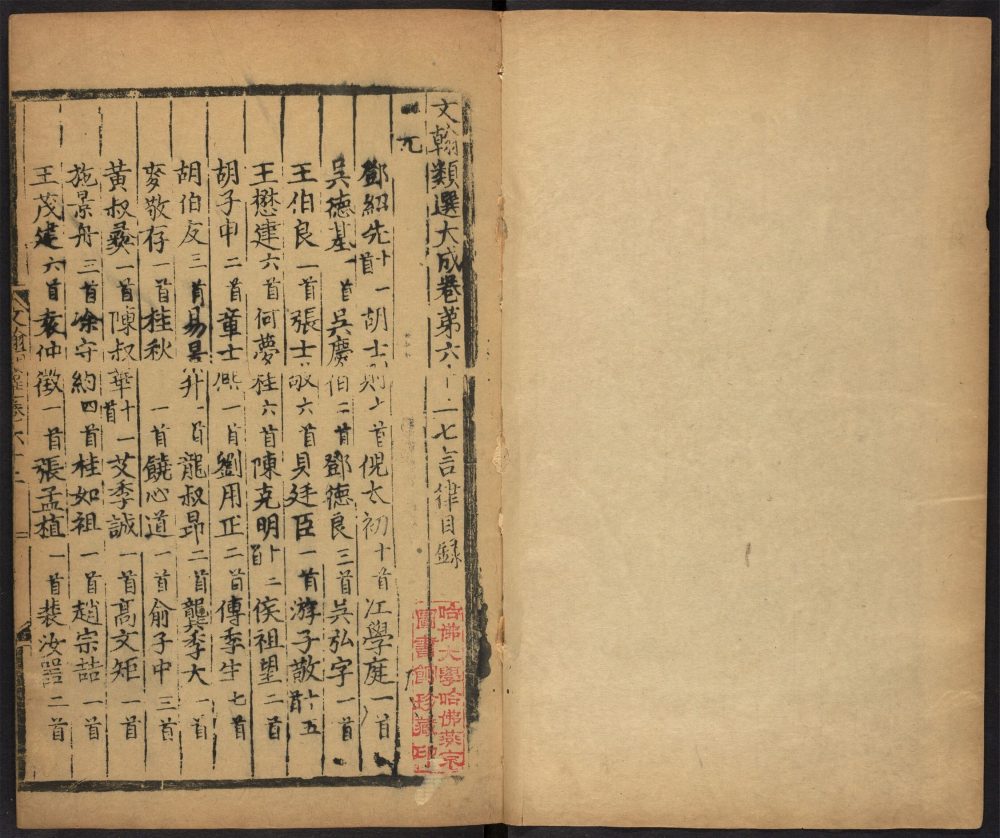 文翰類選大成卷第六十二七言律目録
元
鄧紹先十一首胡士則七首倪太初十首江學庭一首
吳德基一首吳慶伯二首鄧德良三首吳弘字一首
王伯良一首張士敬六首貝廷臣一首游子敬十五首
王懋建六首何夢桂六首陳克明十二首侯祖望二首
胡子中二首章士熙一首劉用正二首傅季生七首
胡伯友三首易昇升一首龍叔昂二首龔季大一首
麥敬存一首桂秋一首饒心道一首俞子中三首
黃叔彝一首陳叔華十一首艾季誠一首高文矩一首
施景舟三首涂守約四首桂如祖一首趙宗喆一首
王茂建六首袁仲徵一首張孟植一首裴汝器二首
哈佛大學哈佛燕京
圖書館珍藏印